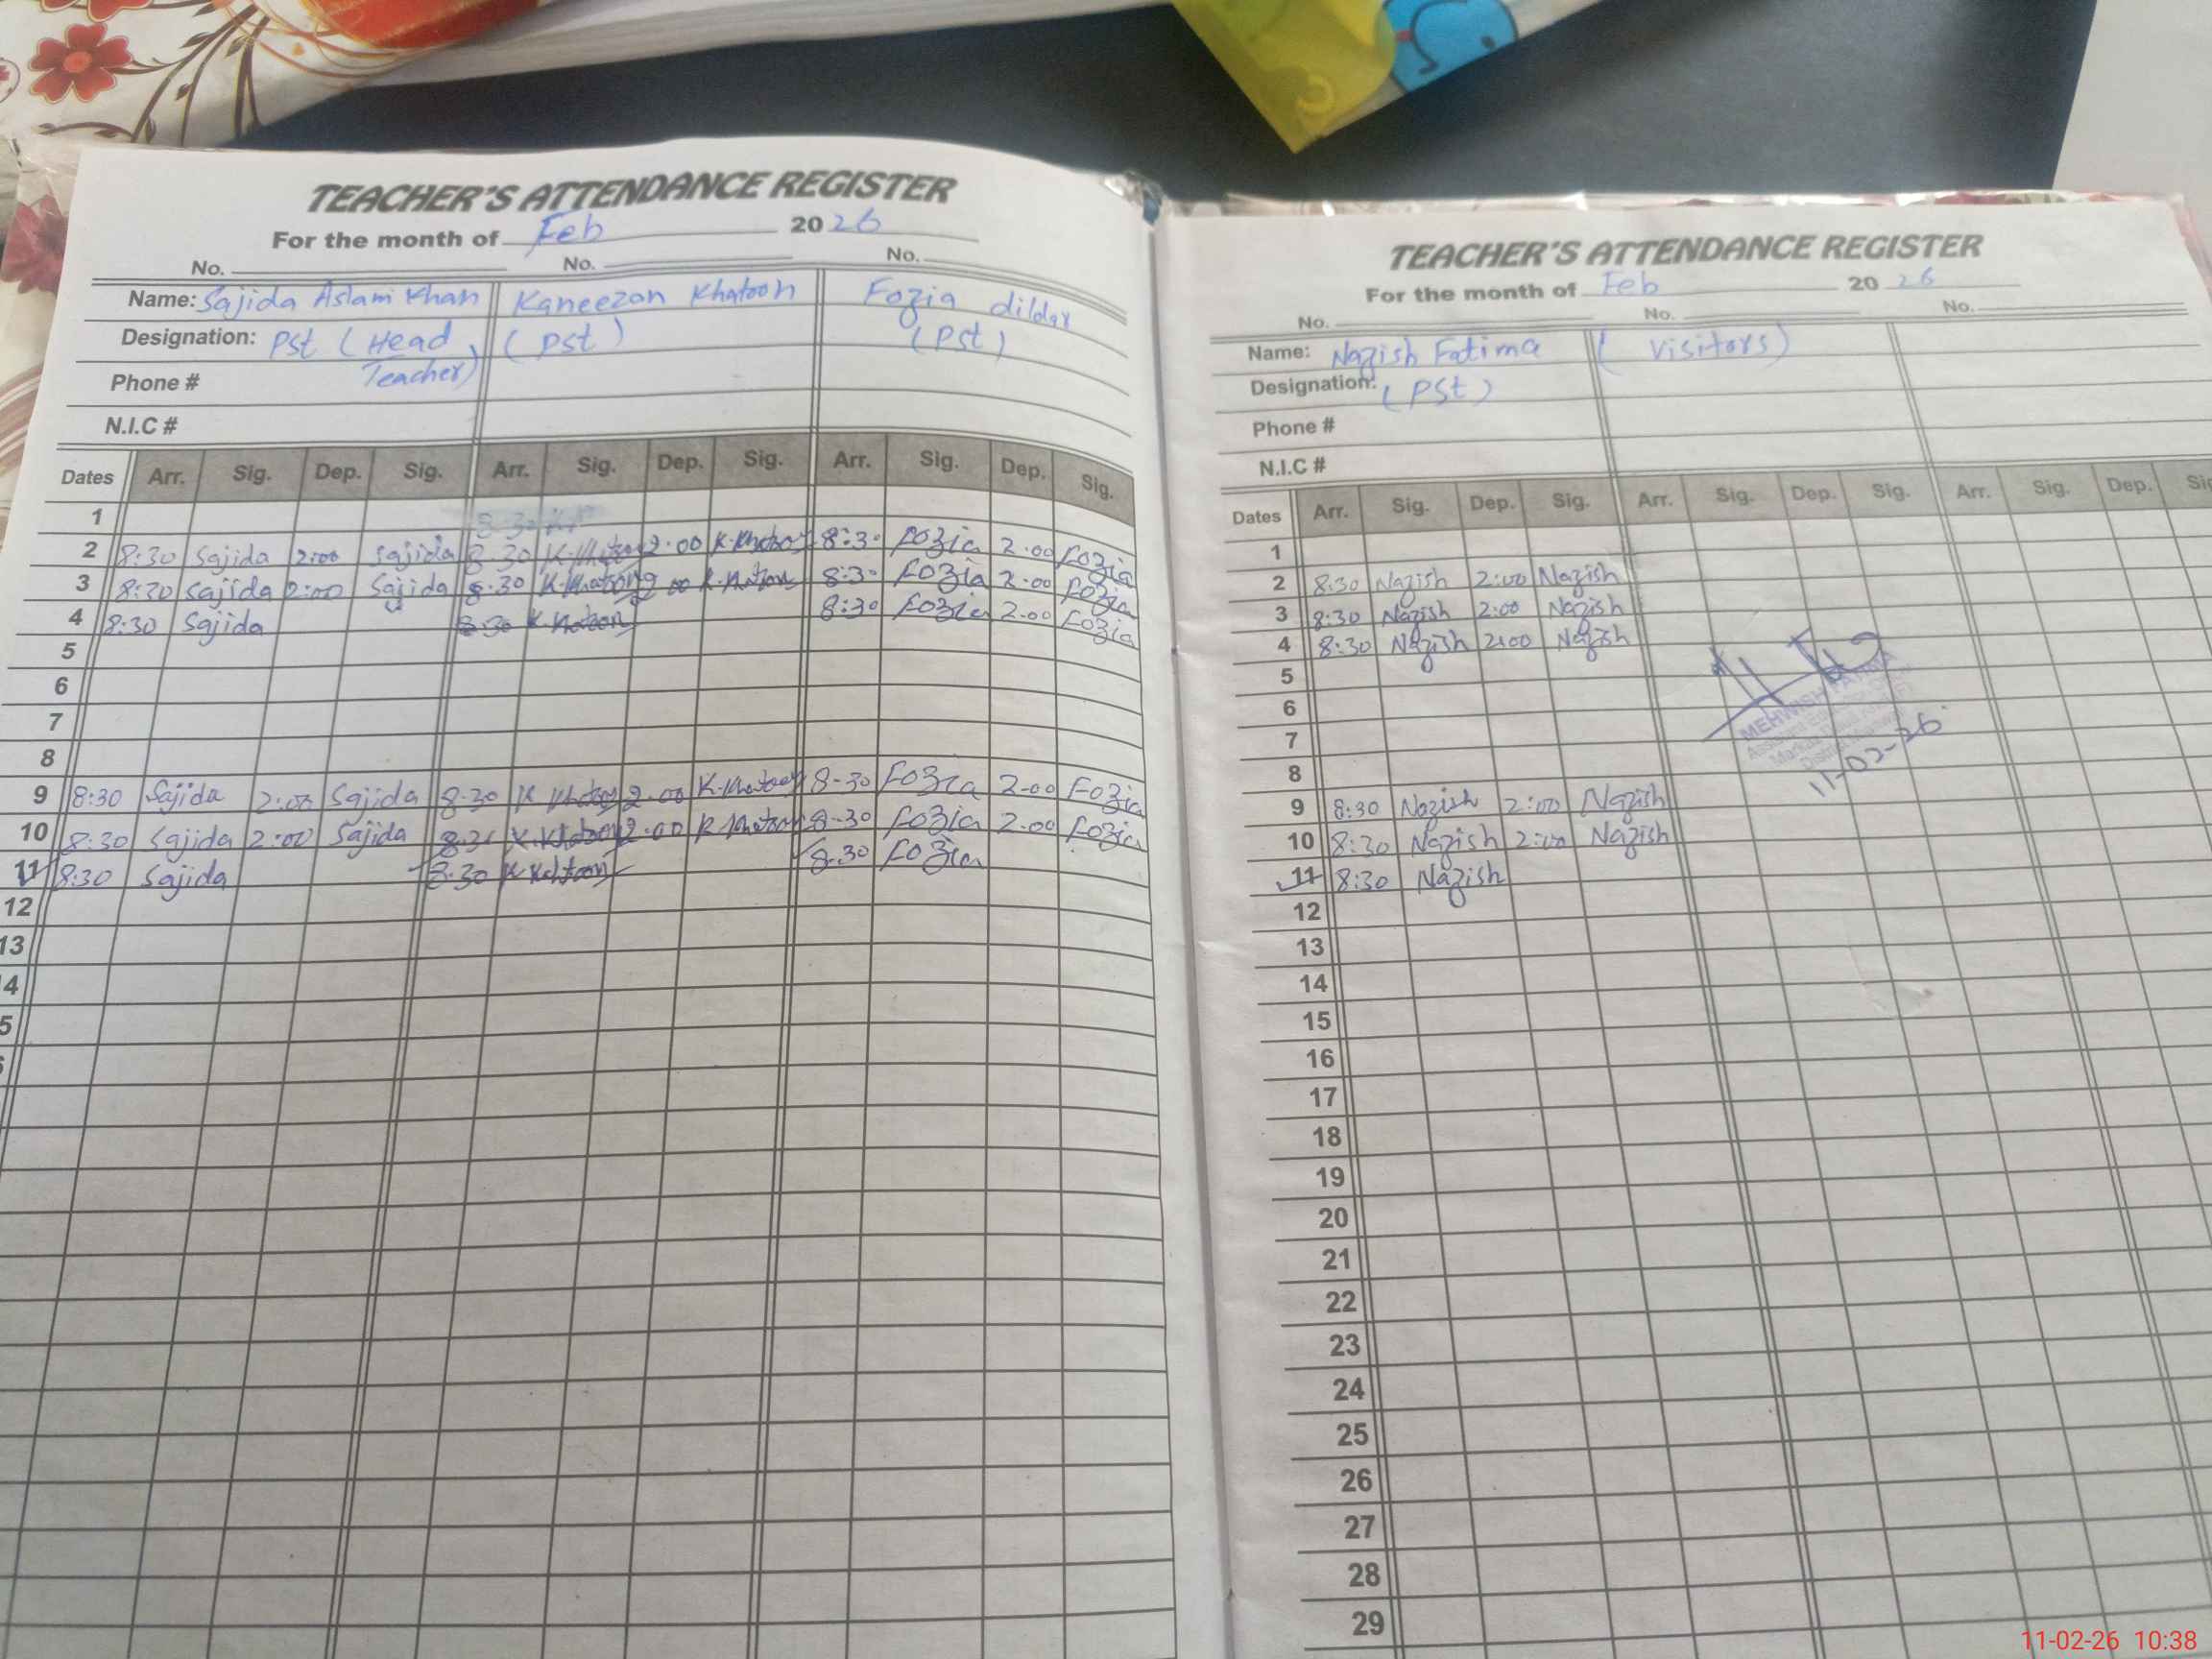 TEACHER'S ATTENDANCE REGISTER
For the month of Feb 2026
No. No. No.
Name: Sajida Aslam Khan Kaneezan Khatoon Fozia dildar
Designation: PST (Head Teacher) (PST) (PST)
Phone #
N.I.C #
Dates Arr. Sig. Dep. Sig. Arr. Sig. Dep. Sig. Arr. Sig. Dep. Sig.
1 8:30
2 8:30 Sajida 2:00 Sajida 8.30 K.Khatoon 2.00 K.Khatoon 8:30 Fozia 2.00 Fozia
3 8:30 Sajida 2:00 Sajida 8.30 K.Khatoon 2.00 K.Khatoon 8:30 Fozia 2.00 Fozia
4 8:30 Sajida 8.30 K.Khatoon 8:30 Fozia 2.00 Fozia
5
6
7
8
9 8:30 Sajida 2:00 Sajida 8.30 K Khatoon 2.00 K.Khatoon 8-30 Fozia 2-00 Fozia
10 8:30 Sajida 2:00 Sajida 8.30 K.Khatoon 2.00 K Khatoon 8-30 Fozia 2.00 Fozia
11 8:30 Sajida 8.30 K Khtoon 8.30 Fozia
12
13
4
5
TEACHER'S ATTENDANCE REGISTER
For the month of Feb 2026
No. No. No.
Name: Nazish Fatima (Visitors)
Designation: (PST)
Phone #
N.I.C #
Dates Arr. Sig. Dep. Sig. Arr. Sig. Dep. Sig. Arr. Sig. Dep. Sig
1
2 8:30 Nazish 2:00 Nazish
3 8:30 Nazish 2:00 Nazish
4 8:30 Nazish 2:00 Nazish
5
6
7 MEHWISH
8 11-02-26
9 8:30 Nazish 2:00 Nazish
10 8:30 Nazish 2:00 Nazish
11 8:30 Nazish
12
13
14
15
16
17
18
19
20
21
22
23
24
25
26
27
28
29
11-02-26 10:38